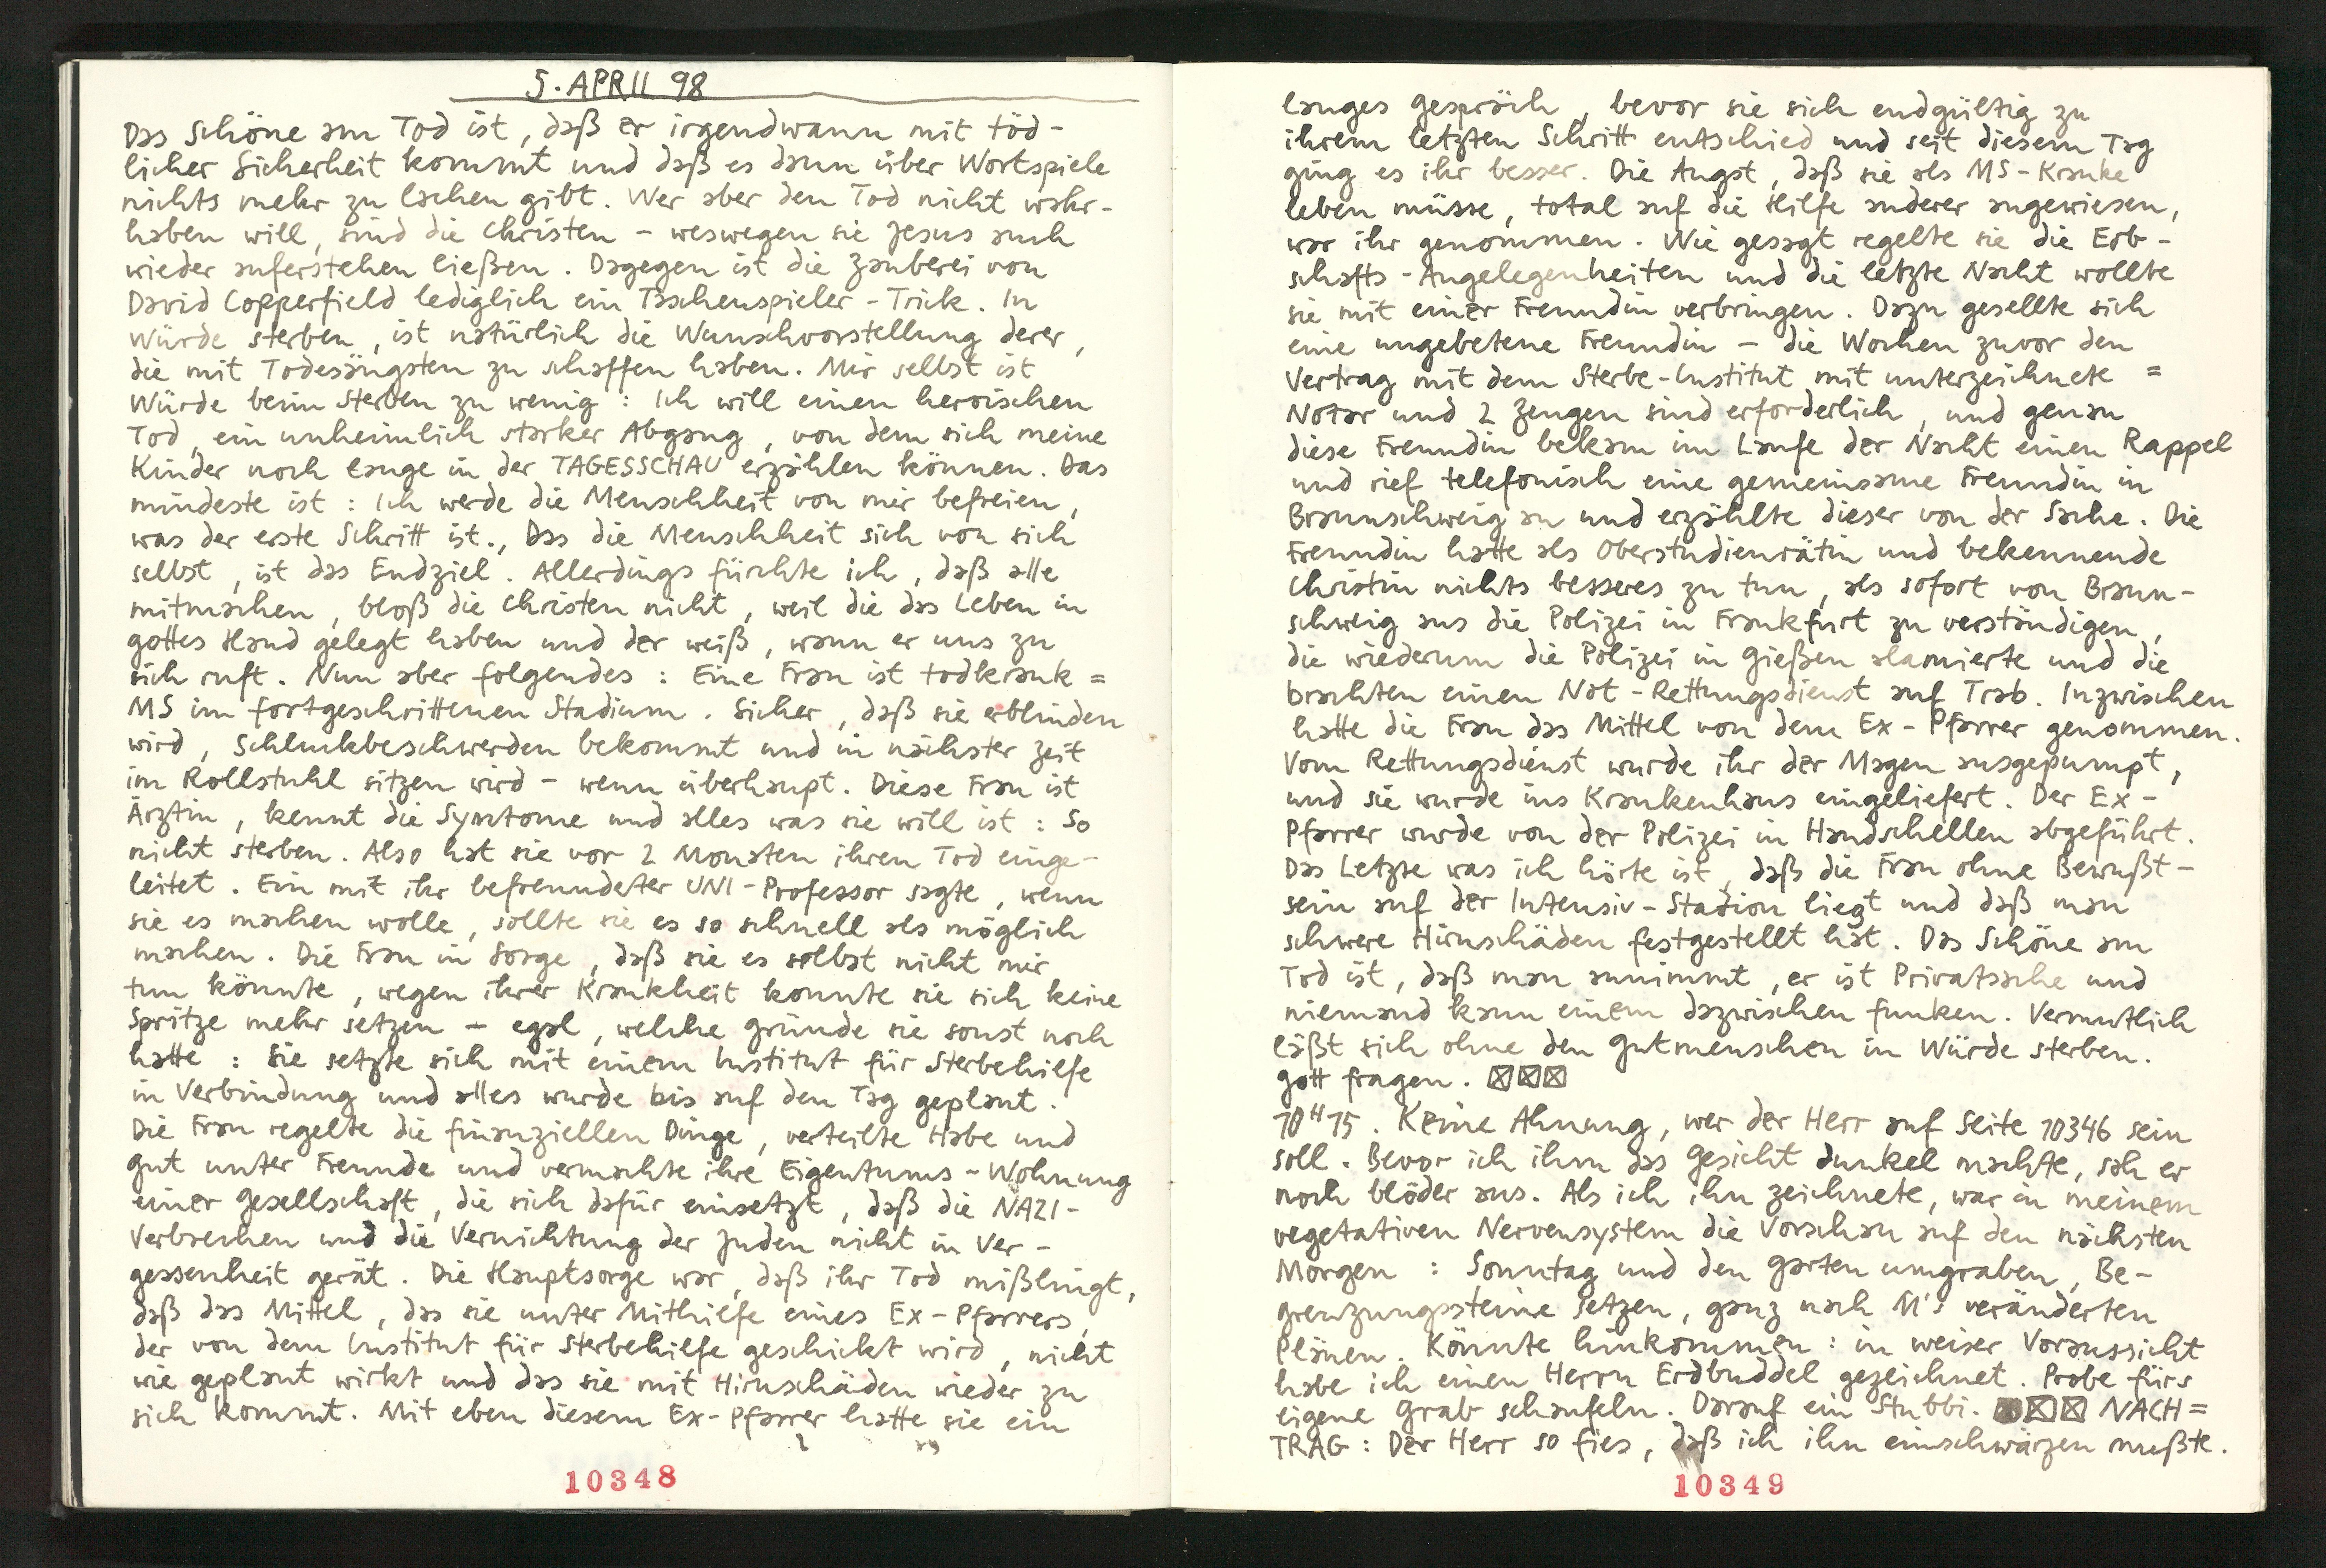 5. APRIL 98
Das Schöne am Tod ist, daß er irgendwann mit töd-
licher Sicherheit kommt und daß es dann über Wortspiele
nichts mehr zu lachen gibt. Wer aber den Tod nicht wahr-
haben will, sind die Christen – weswegen sie Jesus auch
wieder auferstehen ließen. Dagegen ist die Zauberei von
David Copperfield lediglich ein Taschenspieler-Trick. In
Würde sterben, ist natürlich die Wunschvorstellung derer,
die mit Todesängsten zu schaffen haben. Mir selbst ist
Würde beim Sterben zu wenig: Ich will einen heroischen
Tod, ein unheimlich starker Abgang, von dem sich meine
Kinder noch lange in der TAGESSCHAU erzählen können. Das
mindeste ist: Ich werde die Menschheit von mir befreien,
was der erste Schritt ist., Das die Menschheit sich von sich
selbst, ist das Endziel. Allerdings fürchte ich, daß alle
mitmachen, bloß die Christen nicht, weil die das Leben in
gottes Hand gelegt haben und der weiß, wann er uns zu
sich ruft. Nun aber folgendes: Eine Frau ist todkrank =
MS im fortgeschrittenen Stadium. Sicher, daß sie erblinden
wird, Schluckbeschwerden bekommt und in nächster Zeit
im Rollstuhl sitzen wird – wenn überhaupt. Diese Frau ist
Ärztin, kennt die Symtome und alles was sie will ist: So
nicht sterben. Also hat sie vor 2 Monaten ihren Tod einge-
leitet. Ein mit ihr befreundeter UNI-Professor sagte, wenn
sie es machen wolle, sollte sie es so schnell als möglich
machen. Die Frau in Sorge, daß sie es selbst nicht mir
tun könnte, wegen ihrer Krankheit konnte sie sich keine
Spritze mehr setzen – egal, welche Gründe sie sonst noch
hatte: Sie setzte sich mit einem Institut für Sterbehilfe
in Verbindung und alles wurde bis auf den Tag geplant.
Die Frau regelte die finanziellen Dinge, verteilte Habe und
Gut unter Freunde und vermachte ihre Eigentums-Wohnung
einer Gesellschaft, die sich dafür einsetzt, daß die NAZI-
Verbrechen und die Vernichtung der Juden nicht in Ver-
gessenheit gerät. Die Hauptsorge war, daß ihr Tod mißlingt,
daß das Mittel, das sie unter Mithilfe eines Ex-Pfarrers,
der von dem Institut für Sterbehilfe geschickt wird, nicht
wie geplant wirkt und das sie mit Hirnschäden wieder zu
sich kommt. Mit eben diesem Ex-Pfarrer hatte sie ein
10348
langes Gespräch, bevor sie sich endgültig zu
ihrem letzten Schritt entschied und seit diesem Tag
ging es ihr besser. Die Angst, daß sie als MS-Kranke
leben müsse, total auf die Hilfe anderer angewiesen,
war ihr genommen. Wie gesagt regelte sie die Erb-
schafts-Angelegenheiten und die letzte Nacht wollte
sie mit einer Freundin verbringen. Dazu gesellte sich
eine ungebetene Freundin – die Wochen zuvor den
Vertrag mit dem Sterbe-Institut mit unterzeichnete =
Notar und 2 Zeugen sind erforderlich, und genau
diese Freundin bekam im Laufe der Nacht einen Rappel
und rief telefonisch eine gemeinsame Freundin in
Braunschweig an und erzählte dieser von der Sache. Die
Freundin hatte als Oberstudienrätin und bekennende
Christin nichts besseres zu tun, als sofort von Braun-
schweig aus die Polizei in Frankfurt zu verständigen,
die wiederum die Polizei in Gießen alamierte und die
brachten einen Not-Rettungsdienst auf Trab. Inzwischen
hatte die Frau das Mittel von dem Ex-Pfarrer genommen.
Vom Rettungsdienst wurde ihr der Magen ausgepumpt,
und sie wurde ins Krankenhaus eingeliefert. Der Ex-
Pfarrer wurde von der Polizei in Handschellen abgeführt.
Das Letzte was ich hörte ist, daß die Frau ohne Bewußt-
sein auf der Intensiv-Station liegt und daß man
schwere Hirnschäden festgestellt hat. Das Schöne am
Tod ist, daß man annimmt, er ist Privatsache und
niemand kann einem dazwischen funken. Vermutlich
läßt sich ohne den Gutmenschen in Würde sterben.
gott fragen. ☒☒☒
10ᴴ15. Keine Ahnung, wer der Herr auf Seite 10346 sein
soll. Bevor ich ihm das Gesicht dunkel machte, sah er
noch blöder aus. Als ich ihn zeichnete, war in meinem
vegetativen Nervensystem die Vorschau auf den nächsten
Morgen: Sonntag und den Garten umgraben, Be-
grenzungssteine setzen, ganz nach M's veränderten
Plänen. Könnte hinkommen: in weiser Voraussicht
habe ich einen Herrn Erdbuddel gezeichnet. Probe fürs
eigene Grab schaufeln. Darauf ein Stubbi. ☒☒☒ NACH=
TRAG: Der Herr so fies, daß ich ihn einschwärzen mußte.
10349